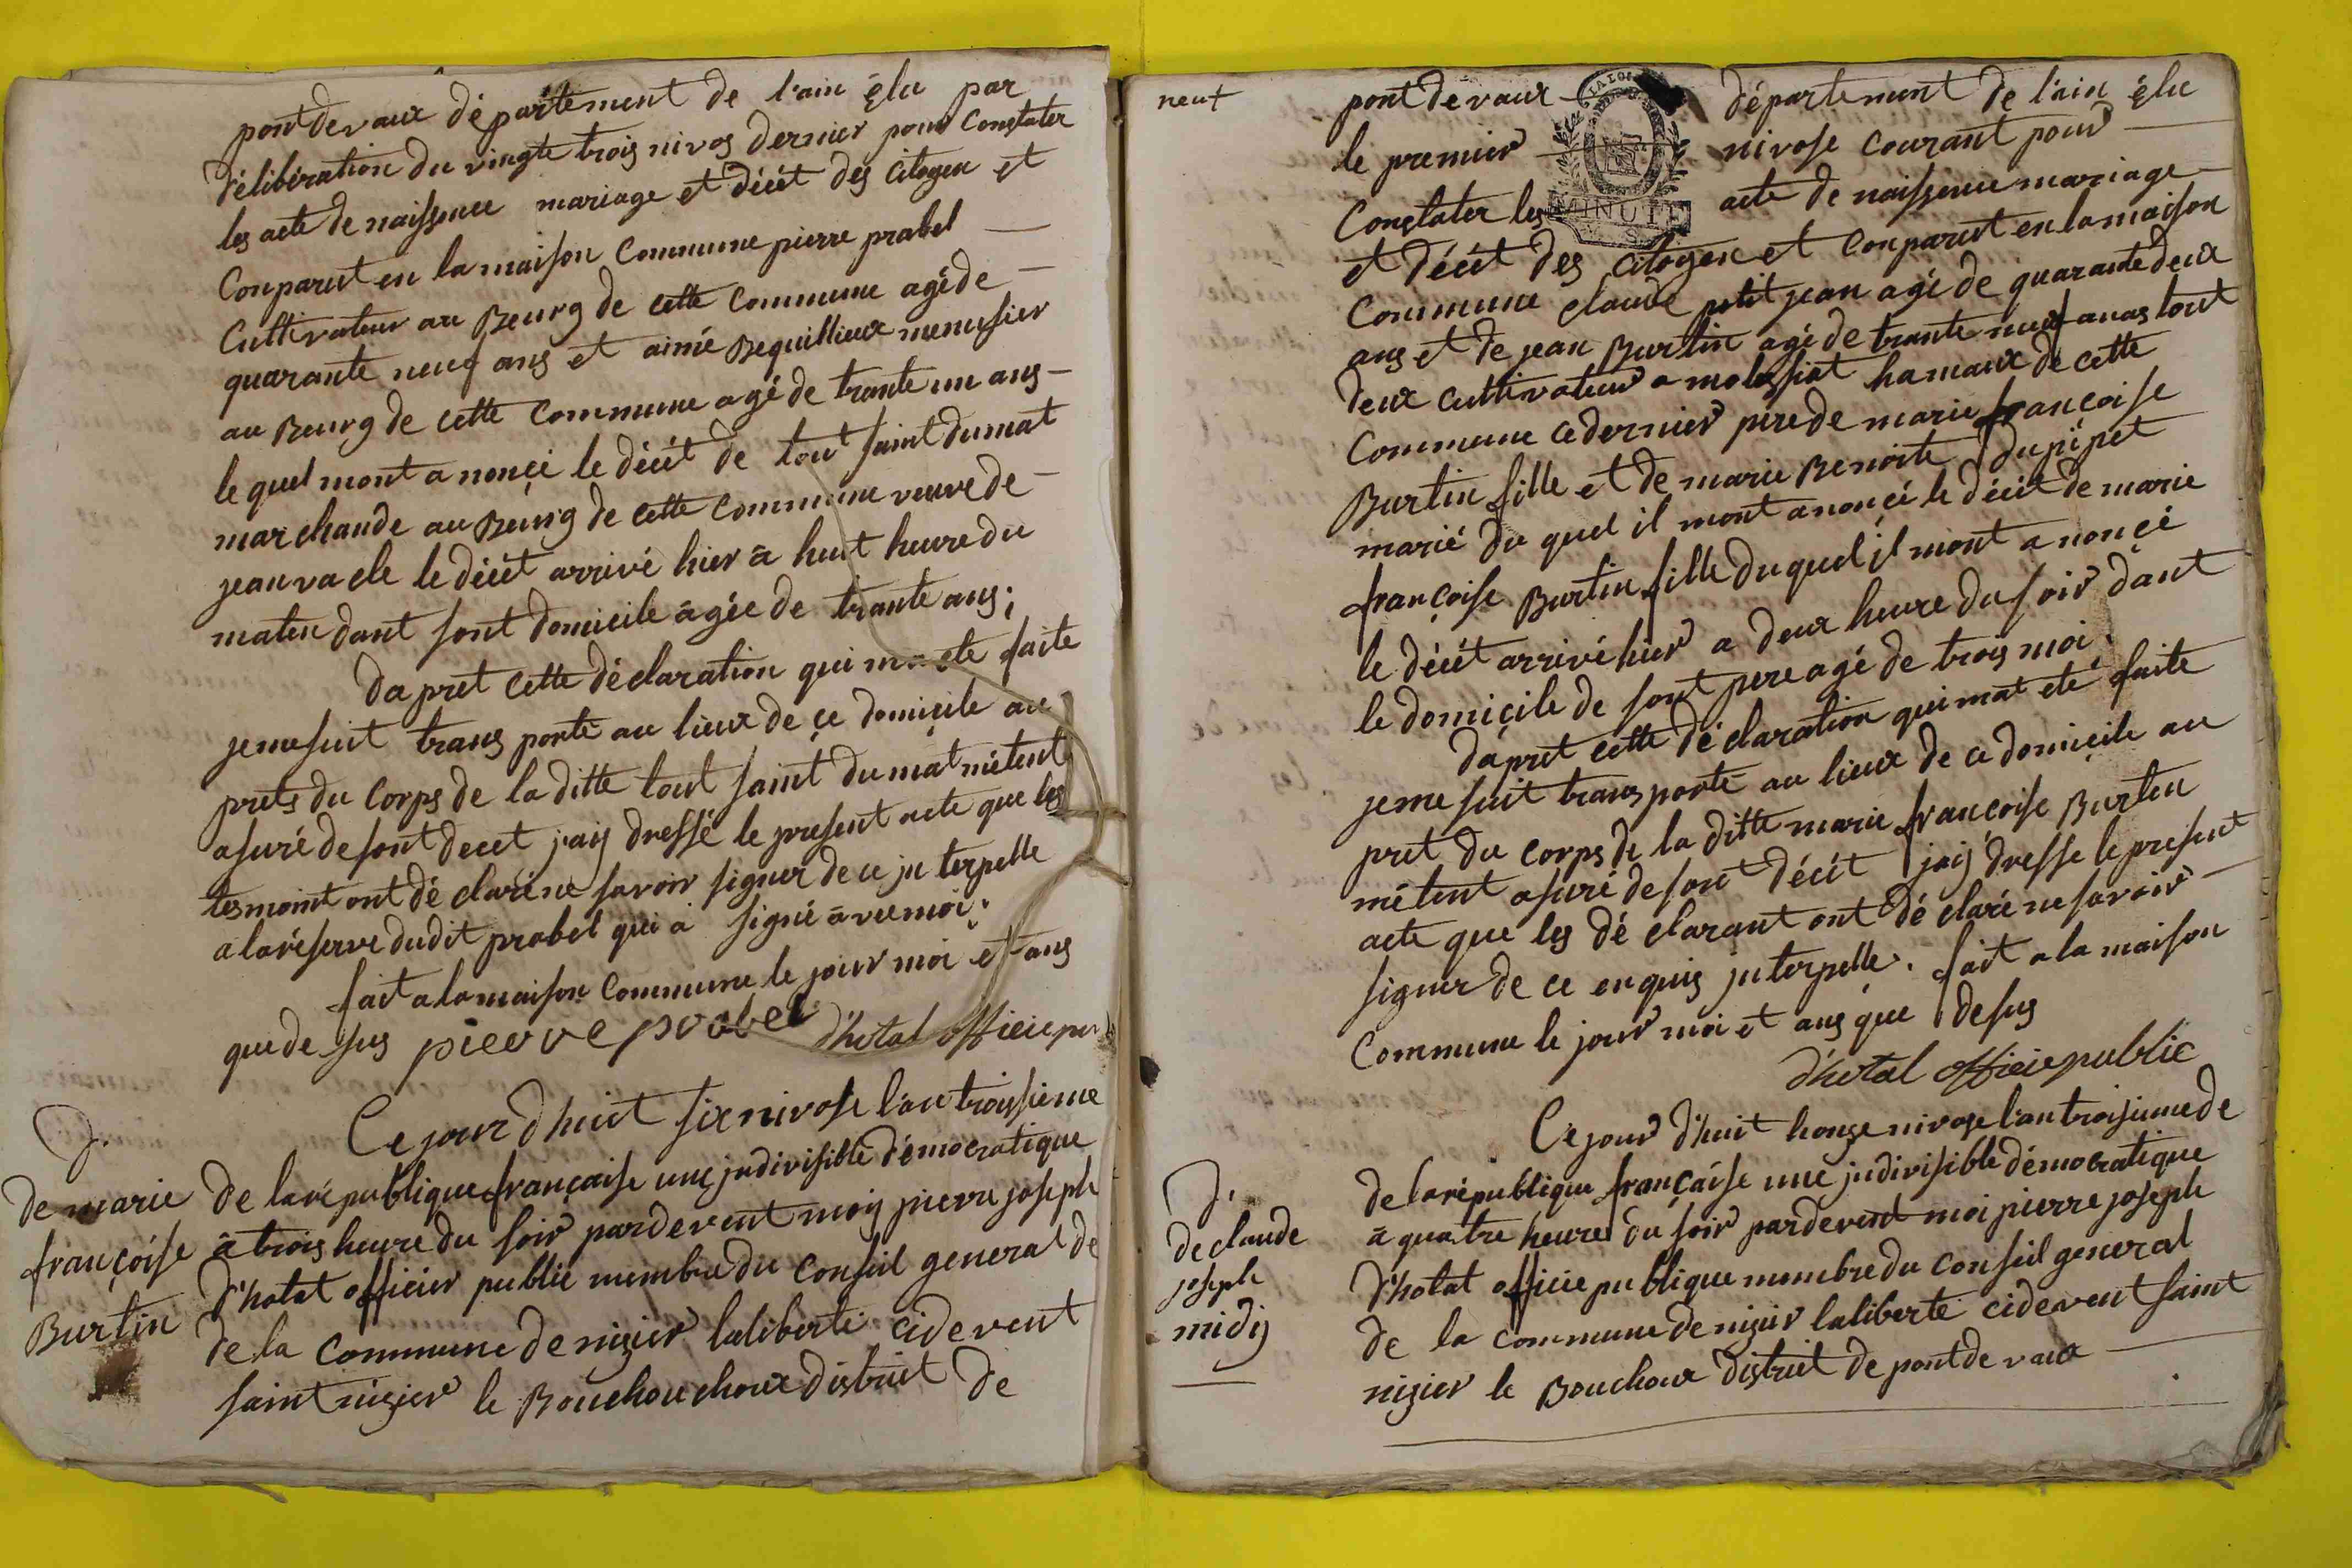 pont devaux département de l'ain élu par
délibération du vingte trois nivos dernier pour Constater
les acte de naissence mariage et décét des Citogen et
Conparut en la maison Commune pierre prabel
Cultivateur au Beurg de cette Commune agé de
quarante neuf ans et aimé Bequillieux menusier
au Beurg de cette Commune agé de trante un ans
le quel mont a noncé le décét de tout saint dumat
marchande au Beurg de cette Commune veuve de
jean va cle le décét arrivé hier à huit heure du
matin dant sont domicile àgée de trante ans;
dapret cette déclaration qui ma ete faite
je me suit trans porté au lieux de ce domicile au
prets du Corps de la ditte tout saint dumat métent
asuré de sont decet j'aij dressé le present acte que les
tesmoint ont dé claré ne savoir signer de ce jn terpelle
a la réserve dudit prabel qui a signé avec moi.
fait a la maison Commune le jour moi et ans
que de sus pierre prabel d'hotal officie pu
D.
de marie
françoise
Burtin
Ce jour d'huit six nivose l'an troissieme
de la république française une jndivisible démocratique
à trois heure du soir pardevent moij pierre joseph
d'hotat officier publie membre du Conseil general de
de la Commune de nizier laliberté cidevent
saint nizier le Bouchouchoux district de
neuf
pont devaux département de l'ain élu
le premier nivose Courant pour
Constater les acte de naissence mariage
LA LOI
MINUTE
et décét des Citogen et Conparut en la maison
Commune claude petit jean agé de quarante deux
ans et de jean Burtin agé de trante neuf anas tout
deux Cultivateur a molassiat hamaux de cette
Commune ce dernier pere de marie françoise
Burtin fille et de marie Benoite dupépet
marié du quel il mont anoncé le décét de marie
françoise Burtin fille du quel jl mont a noncé
le décét arrivé hier a deux heure du soir dant
le domicile de sont pere agé de trois moi.
dapret cette déclaration qui mat eté faite
je me suit trans porté au lieux de ce domicile au
pret du Corps de la ditte marie françoise Burtin
métent asuré de sont décét jaij dresse le present
acte que les dé clarant ont dé claré ne savoir
signer de ce enquis jnterpelle. fait a la maison
Commune le jour moi et ans que desus
d'hotal officie public
D.
de claude
joseph
midij
Ce jour d'huit honze nivose l'an troisieme de
de la république française une jndivisible démocratique
à quatre heure du soir pardevent moi pierre joseph
d'hotat officie publique membre du Conseil general
de la commune de nizier laliberté cidevent saint
nizier le Bouchoux district de pont de vaux